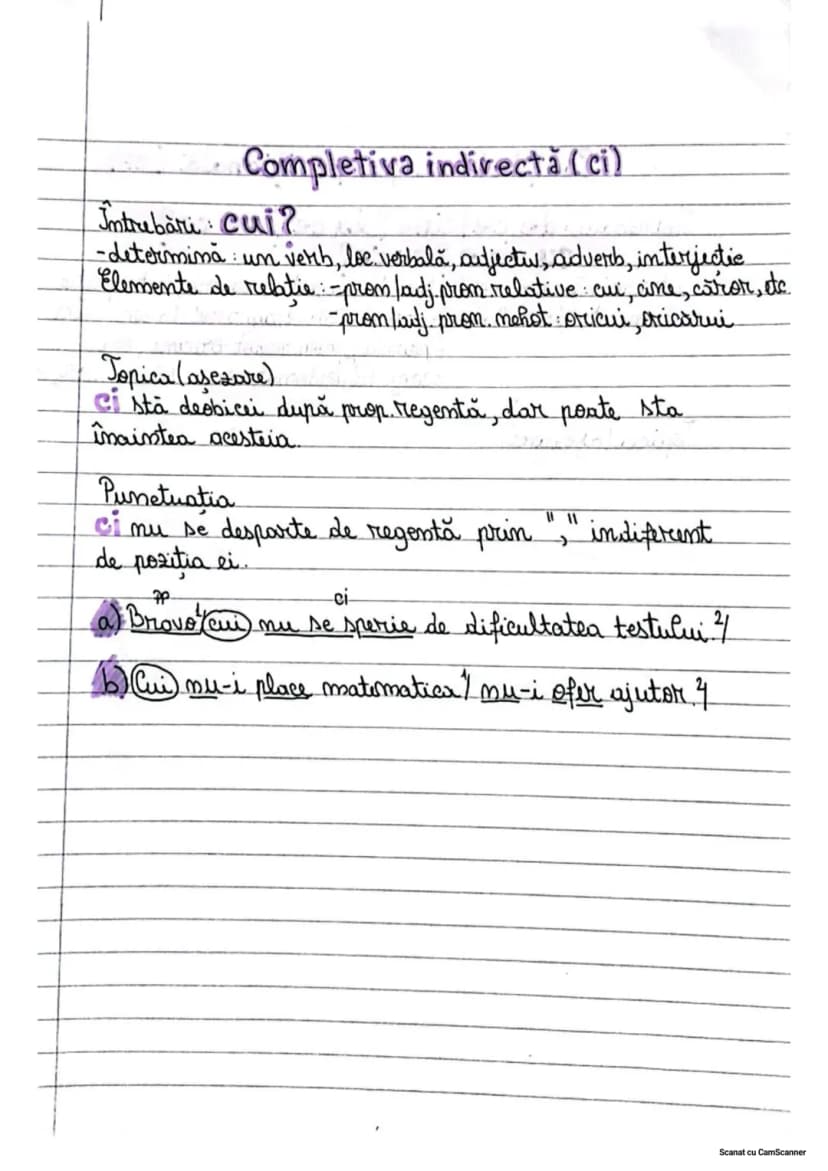 Completiva indirectă (ci)
Întrebări : cui?
-determină : un verb, loc. verbală, adjectiv, adverb, interjectie
Elemente de relație :-pron/adj. pron relative : cui, cine, căror, etc.
-pron/adj. pron. nehot : oricui, oricărui
Topica (așezare)
ci stă deobicei după prop. regentă, dar poate sta
înaintea acesteia.
Punctuatia
ci nu se desparte de regentă prin "," indiferent
de poziția ei.
pp ci
a) Bravo1/ cui nu se sperie de dificultatea testului.2/
b) Cui nu-i place matematica1/ nu-i ofer ajutor.2/
Scanat cu CamScanner